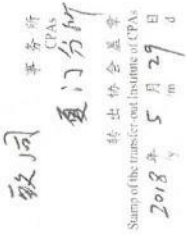 致同
事务所
CPAs
厦门分所
转出协会盖章
Stamp of the transfer out Institute of CPAs
2018 年 5 月 29 日
/y /m /d